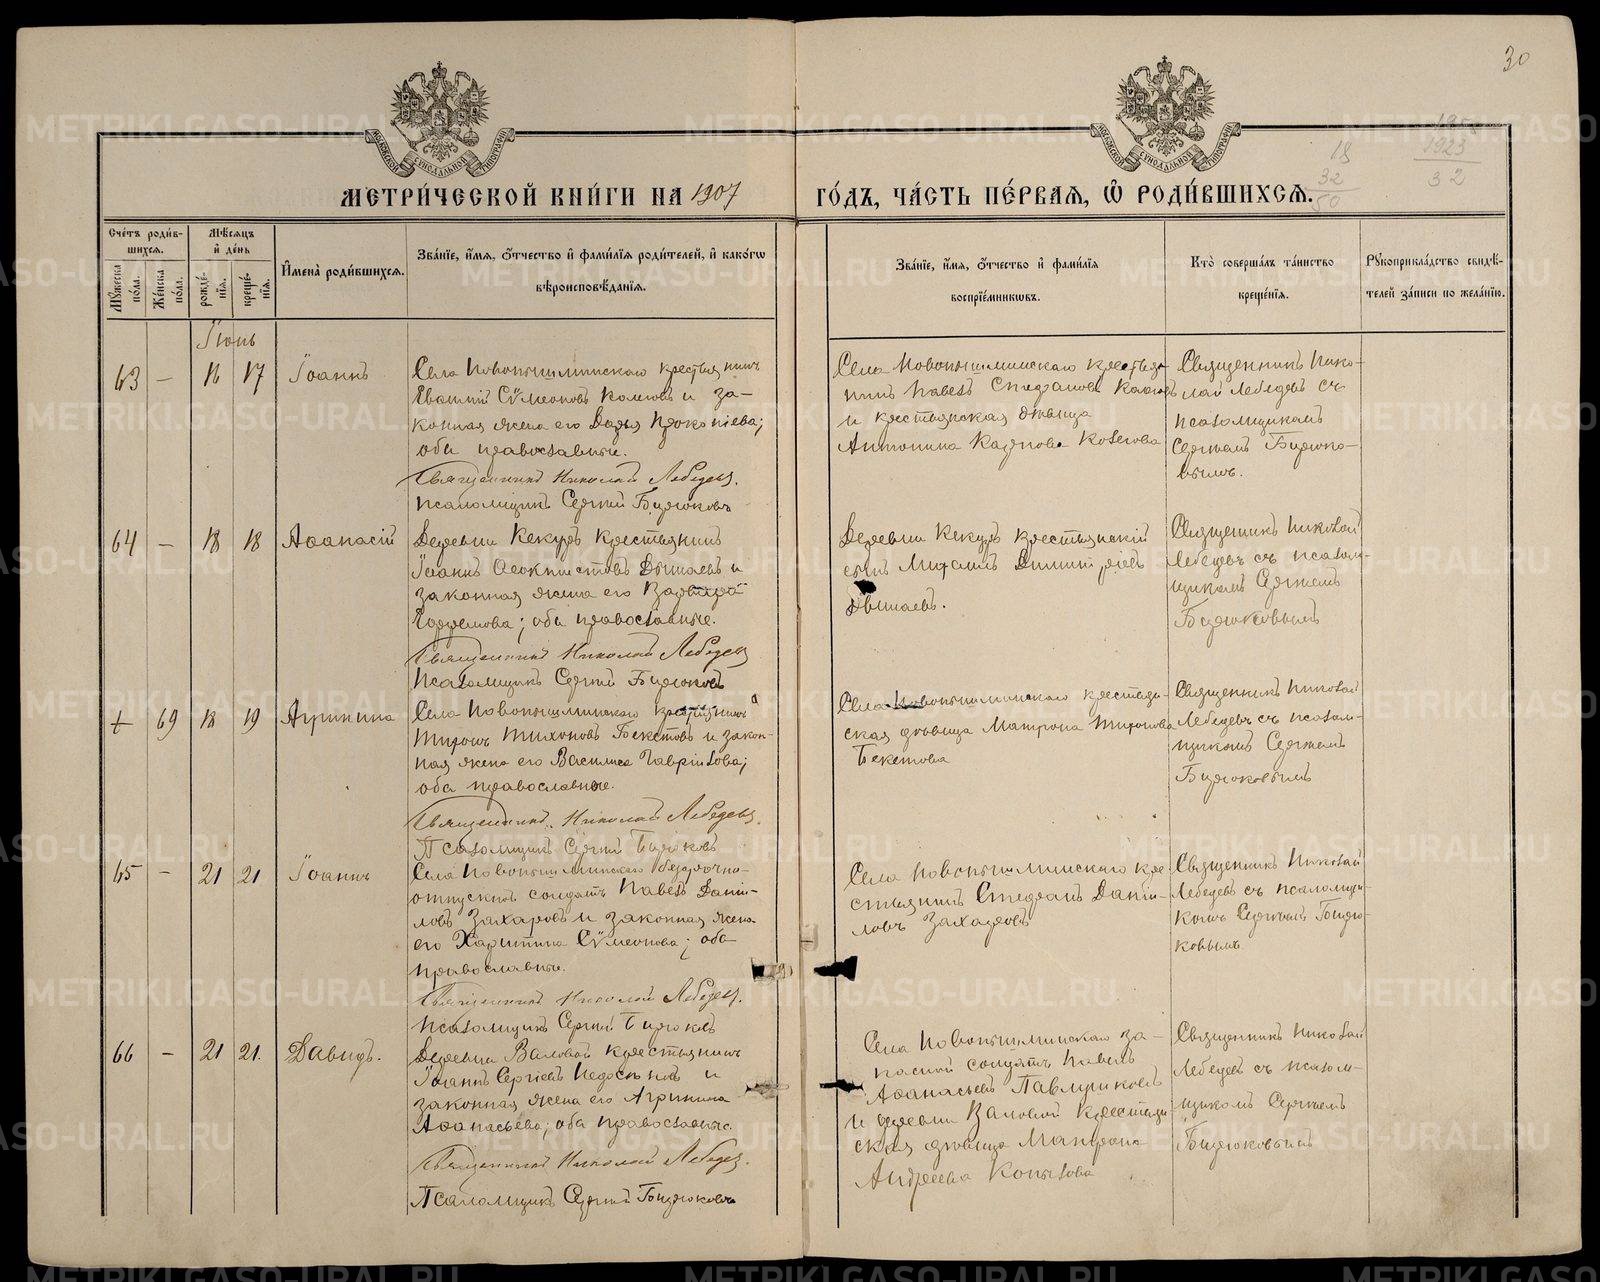 30
МЕТРИ́ЧЕСКОЙ КНИ́ГИ НА 1907 ГО́ДЪ, ЧА́СТЬ ПЕ́РВАѦ, Ѽ РОДИ́ВШИХСѦ.
18
32
50
1923
32
Сче́тъ роди́в-
шихсѧ.
Мѣ́сѧцъ
и҆ де́нь
Мꙋ́жеска по́ла.
Же́нска по́ла.
рожде́-
нїѧ.
креще́-
нїѧ.
И҆мена̀ роди́вшихсѧ.
Зва́нїе, и҆́мѧ, ѻ҆́тчество и҆ фами́лїѧ роди́телей, и҆ како́гѡ
вѣроисповѣ́данїѧ.
Зва́нїе, и҆́мѧ, ѻ҆́тчество и҆ фами́лїѧ
воспрїе́мникѡвъ.
Кто̀ соверша́лъ та́инство
креще́нїѧ.
Рꙋкоприкла́дство свидѣ́-
телей за́писи по жела́нїю.
Іюнь
63 — 16 17 Іоаннъ
Села Новопышминскаго крестьянинъ
Евѳимій Сѵмеоновъ и за-
конная жена его Дарья Прокопіева;
оба православные.
Священникъ Николай Лебедевъ.
Псаломщикъ Сергій Бирюковъ
Села Новопышминскаго крестья-
нинъ Павелъ Стефановъ
и крестьянская дѣвица
Антонина Карпова
Священникъ Нико-
лай Лебедевъ съ
псаломщикомъ
Сергіемъ Бирюко-
вымъ.
64 — 18 18 Аѳанасій
Деревни Кекуръ крестьянинъ
Іоаннъ Ѳеоктистовъ и
законная жена его
оба православные.
Священникъ Николай Лебедевъ
Псаломщикъ Сергій Бирюковъ
Деревни Кекуръ крестьянскій
сынъ Михаилъ Димитріевъ
Священникъ Николай
Лебедевъ съ псалом-
щикомъ Сергіемъ
Бирюковымъ
69 18 19 Агрипина
Села Новопышминскаго крестьянинъ
Миронъ Тихоновъ Бекетовъ и закон-
ная жена его Василиса Гавріилова;
оба православные.
Священникъ Николай Лебедевъ.
Псаломщикъ Сергій Бирюковъ
Села Новопышминскаго крестьян-
ская дѣвица Матрона Миронова
Бекетова
Священникъ Николай
Лебедевъ съ псалом-
щикомъ Сергіемъ
Бирюковымъ
65 — 21 21 Іоаннъ
Села Новопышминскаго безсрочно-
отпускной солдатъ Павелъ Даніи-
ловъ Захаровъ и законная жена
его Харитина Сѵмеонова; оба
православные.
Священникъ Николай Лебедевъ.
Псаломщикъ Сергій Бирюковъ
Села Новопышминскаго кре-
стьянинъ Стефанъ Даніи-
ловъ Захаровъ
Священникъ Николай
Лебедевъ съ псаломщи-
комъ Сергіемъ Бирю-
ковымъ
66 — 21 21. Давидъ.
Деревни Валовой крестьянинъ
Іоаннъ Сергіевъ и
законная жена его Агрипина
Аѳанасьева; оба православные.
Священникъ Николай Лебедевъ.
Псаломщикъ Сергій Бирюковъ
Села Новопышминскаго за-
пасной солдатъ Павелъ
Аѳанасьевъ Павлушковъ
и деревни Валовой крестьян-
ская дѣвица Матрона
Андреева Копылова
Священникъ Николай
Лебедевъ съ псалом-
щикомъ Сергіемъ
Бирюковымъ
METRIKI.GASO-URAL.RU